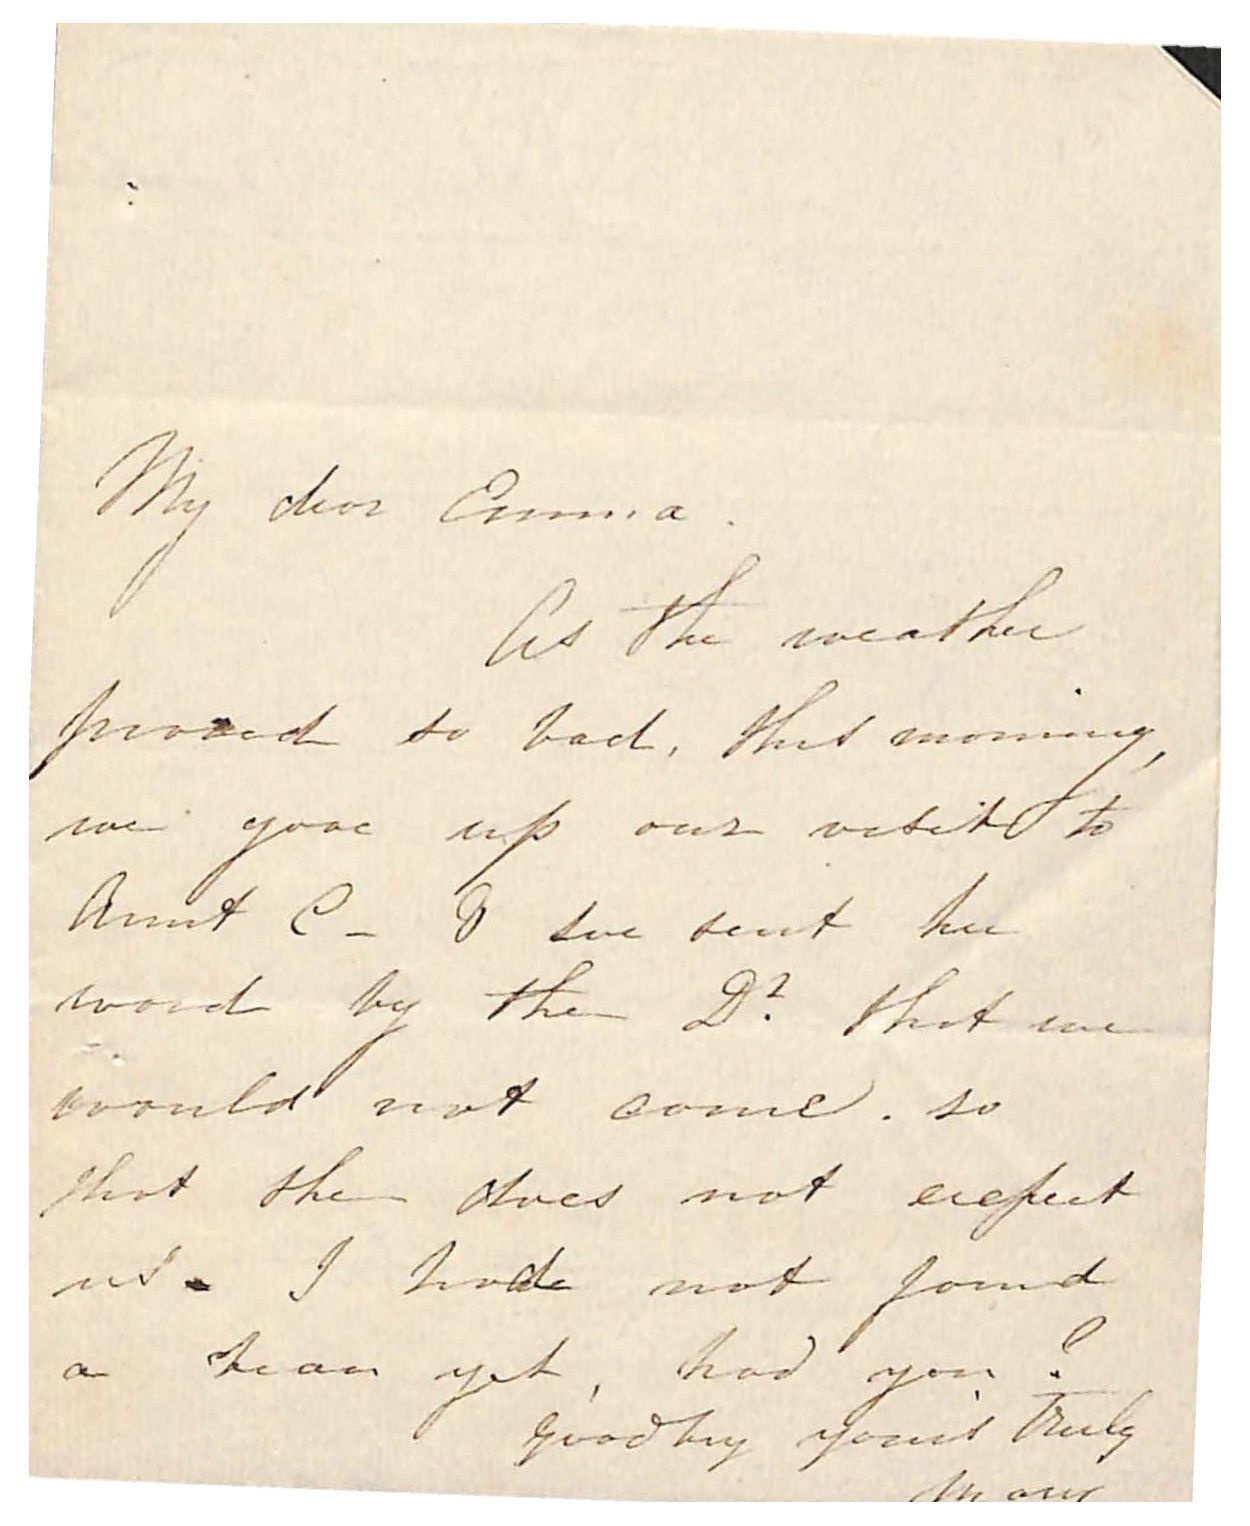 My dear Emma.
As the weather
proved so bad, this morning,
we gave up our visit to
Aunt C— & we sent her
word by the Dr. that we
would not come. so
that she does not expect
us. I had not found
a yet, had you?
Goodby yours truly
Mary